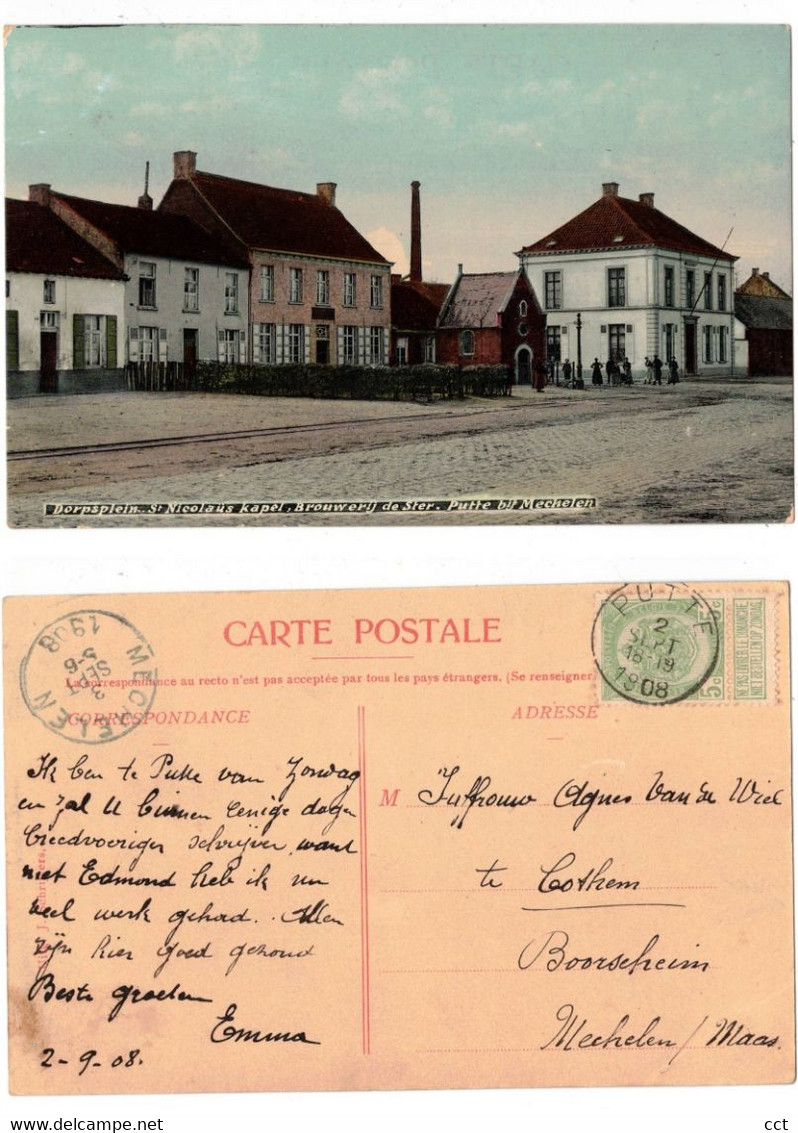 Dorpsplein. St Nicolaüs kapel. Brouwerij de Ster. Putte bij Mechelen
CARTE POSTALE
La correspondance au recto n'est pas acceptée par tous les pays étrangers. (Se renseigner
CORRESPONDANCE
ADRESSE
PUTTE
2
SEPT
18-19
1908
5c
5c
NE PAS LIVRER LE DIMANCHE
NIET BESTELLEN OP ZONDAG
MECHELEN
3
SEPT
5-6
1908
Ik ben te Putte van Zondag
en zal U binnen eenige dagen
breedvoeriger schrijven, want
met Edmond heb ik nu
veel werk gehad. Allen
zijn hier goed gezond
Beste groeten
Emma
2-9-08.
M Juffrouw Agnes Van de Wiel
te Cothem
Boorseheim
Mechelen / Maas.
cct